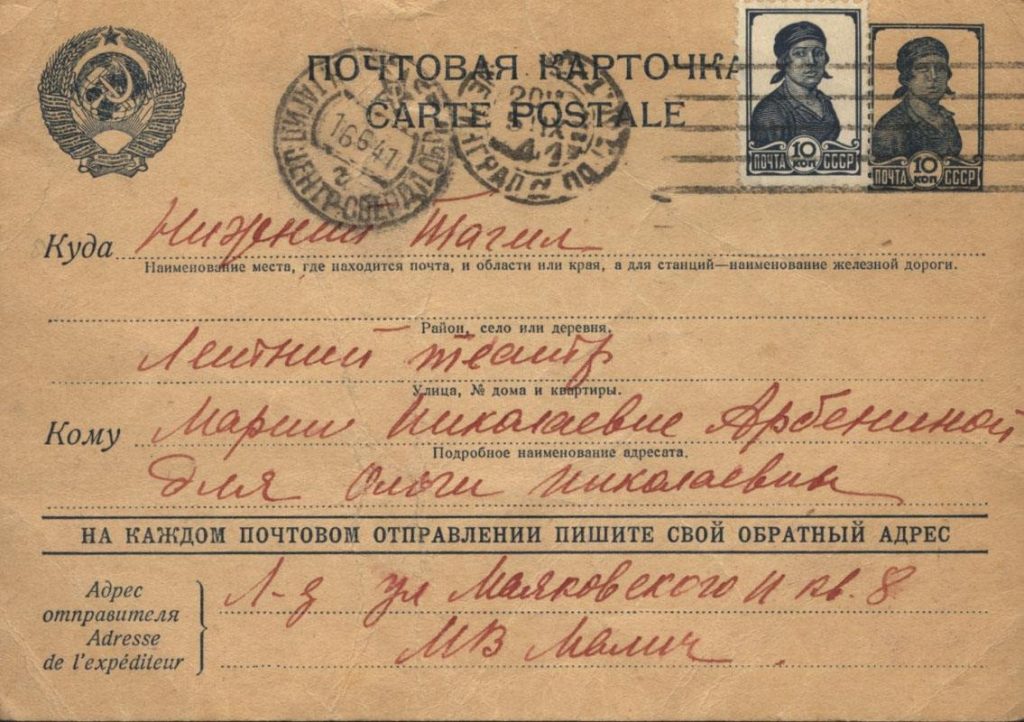 ПОЧТОВАЯ КАРТОЧКА
CARTE POSTALE
16 6 41
ПОЧТА 10 КОП СССР
ПОЧТА 10 КОП СССР
Куда Нижний Тагил
Наименование места, где находится почта, и области или края, а для станций—наименование железной дороги.
Район, село или деревня.
Летний театр
Улица, № дома и квартиры.
Кому Марии Николаевне Арбениной
Подробное наименование адресата.
для Ольги Николаевны
НА КАЖДОМ ПОЧТОВОМ ОТПРАВЛЕНИИ ПИШИТЕ СВОЙ ОБРАТНЫЙ АДРЕС
Адрес отправителя
Adresse de l'expéditeur
Л-д ул Маяковского 11 кв. 8
МВ Малич